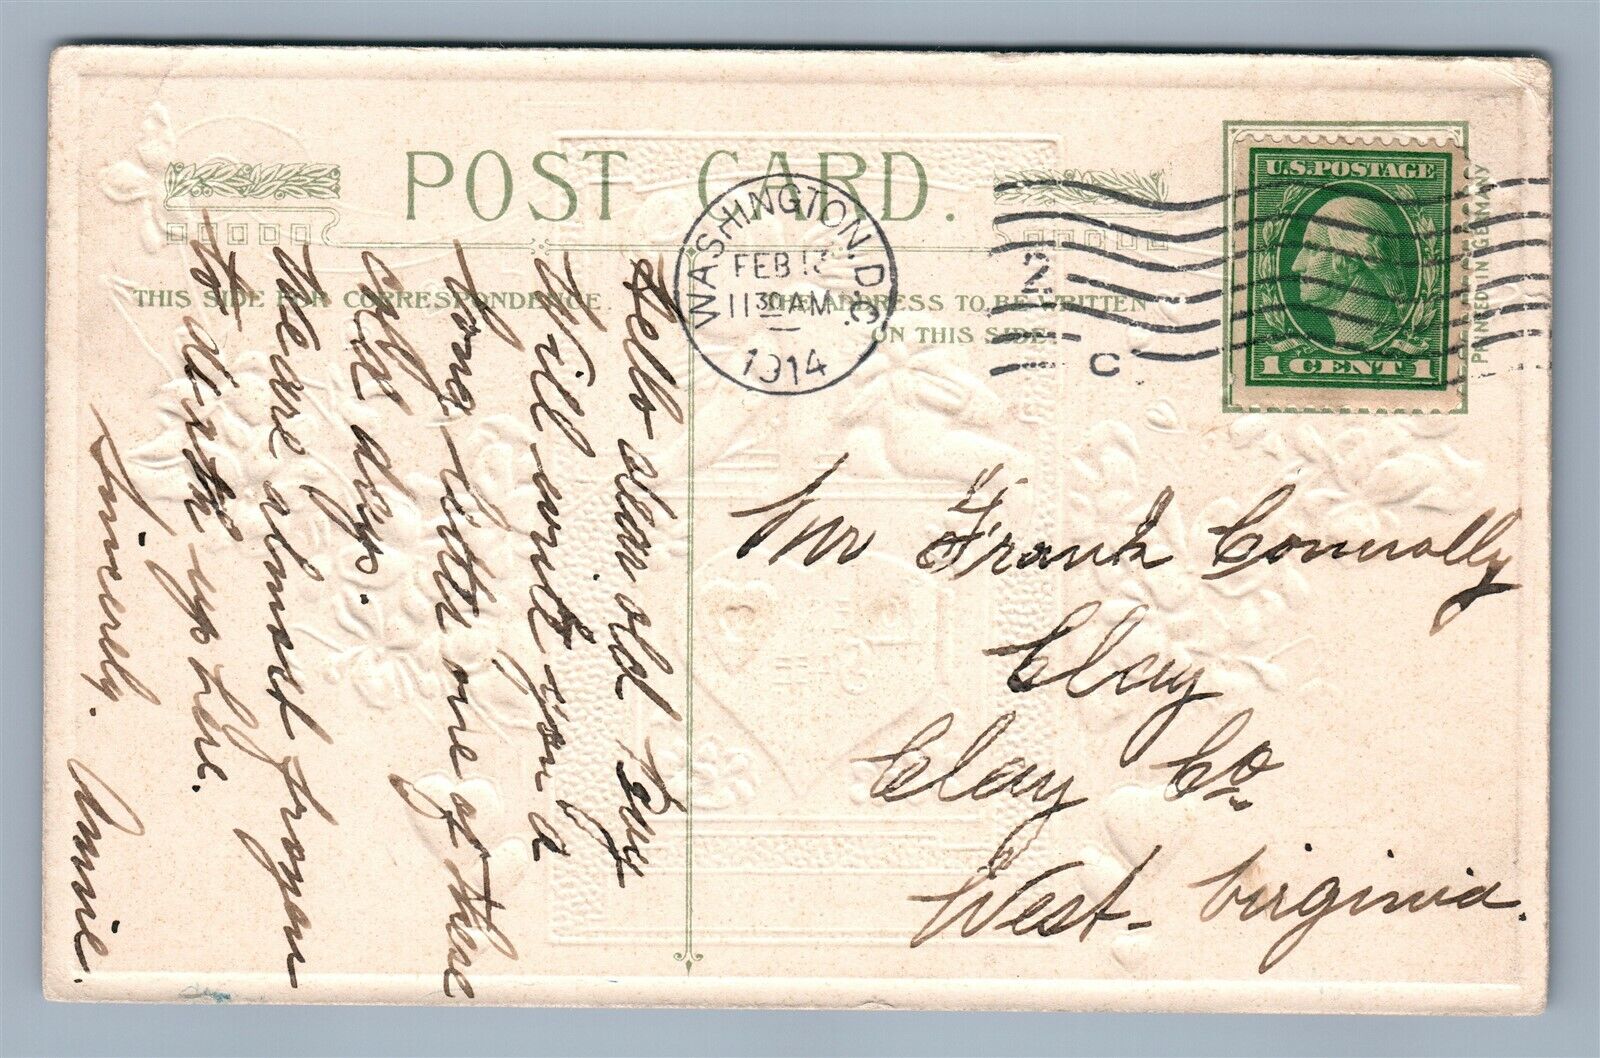 POST CARD.
THIS SIDE FOR CORRESPONDENCE.
THE ADDRESS TO BE WRITTEN
ON THIS SIDE
WASHINGTON, D.C.
FEB 13
11 30 AM
1914
C
U.S. POSTAGE
1 CENT 1
PRINTED IN GERMANY
Hello dear old Boy
Will write you a
long letter one of these
cold days.
We are almost frozen
to death up here.
Sincerely.
Annie.
Mr Frank Connolly
Clay
Clay Co
West-Virginia.